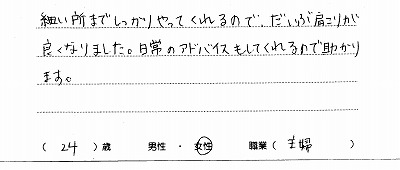 細い所までしっかりやってくれるので、だいぶ肩こりが
良くなりました。日常のアドバイスもしてくれるので助かり
ます。
( 24 ) 歳 男性 ・ 女性 職業 ( 主婦 )